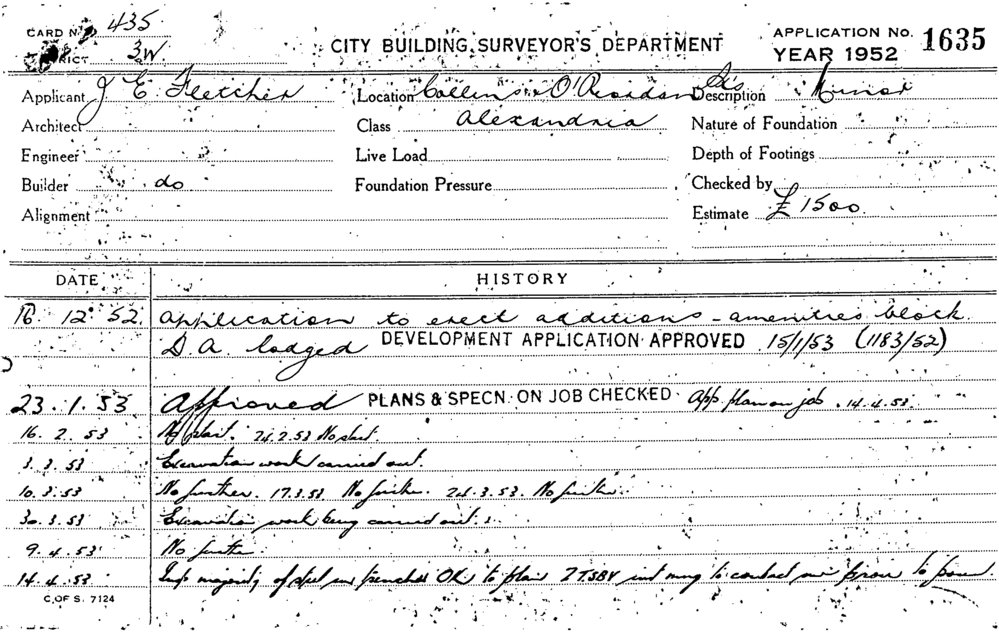 CARD No. 435
DISTRICT 3W.
CITY BUILDING SURVEYOR'S DEPARTMENT
APPLICATION No. 1635
YEAR 1952
Applicant J E Fletcher Location Collins & O'Riordan Sts Description Minor
Architect Class Alexandria Nature of Foundation
Engineer Live Load Depth of Footings
Builder do Foundation Pressure Checked by
Alignment Estimate £1500
DATE HISTORY
16. 12. 52. Application to erect additions - amenities block.
D.A. lodged DEVELOPMENT APPLICATION APPROVED 15/1/53 (1183/52)
23.1.53 Approved PLANS & SPECN. ON JOB CHECKED App. plan on job. 14.4.53.
16. 2. 53 No start. 24.2.53 No start.
3. 3. 53 Excavation work carried out.
10. 3. 53 No further. 17.3.53 No further. 24.3.53. No further.
30. 3. 53 Excavation work being carried out.
9. 4. 53 No further.
14. 4. 53 Insp majority of steel in trenches OK to plan to contact prior to pour.
C. OF S. 7124